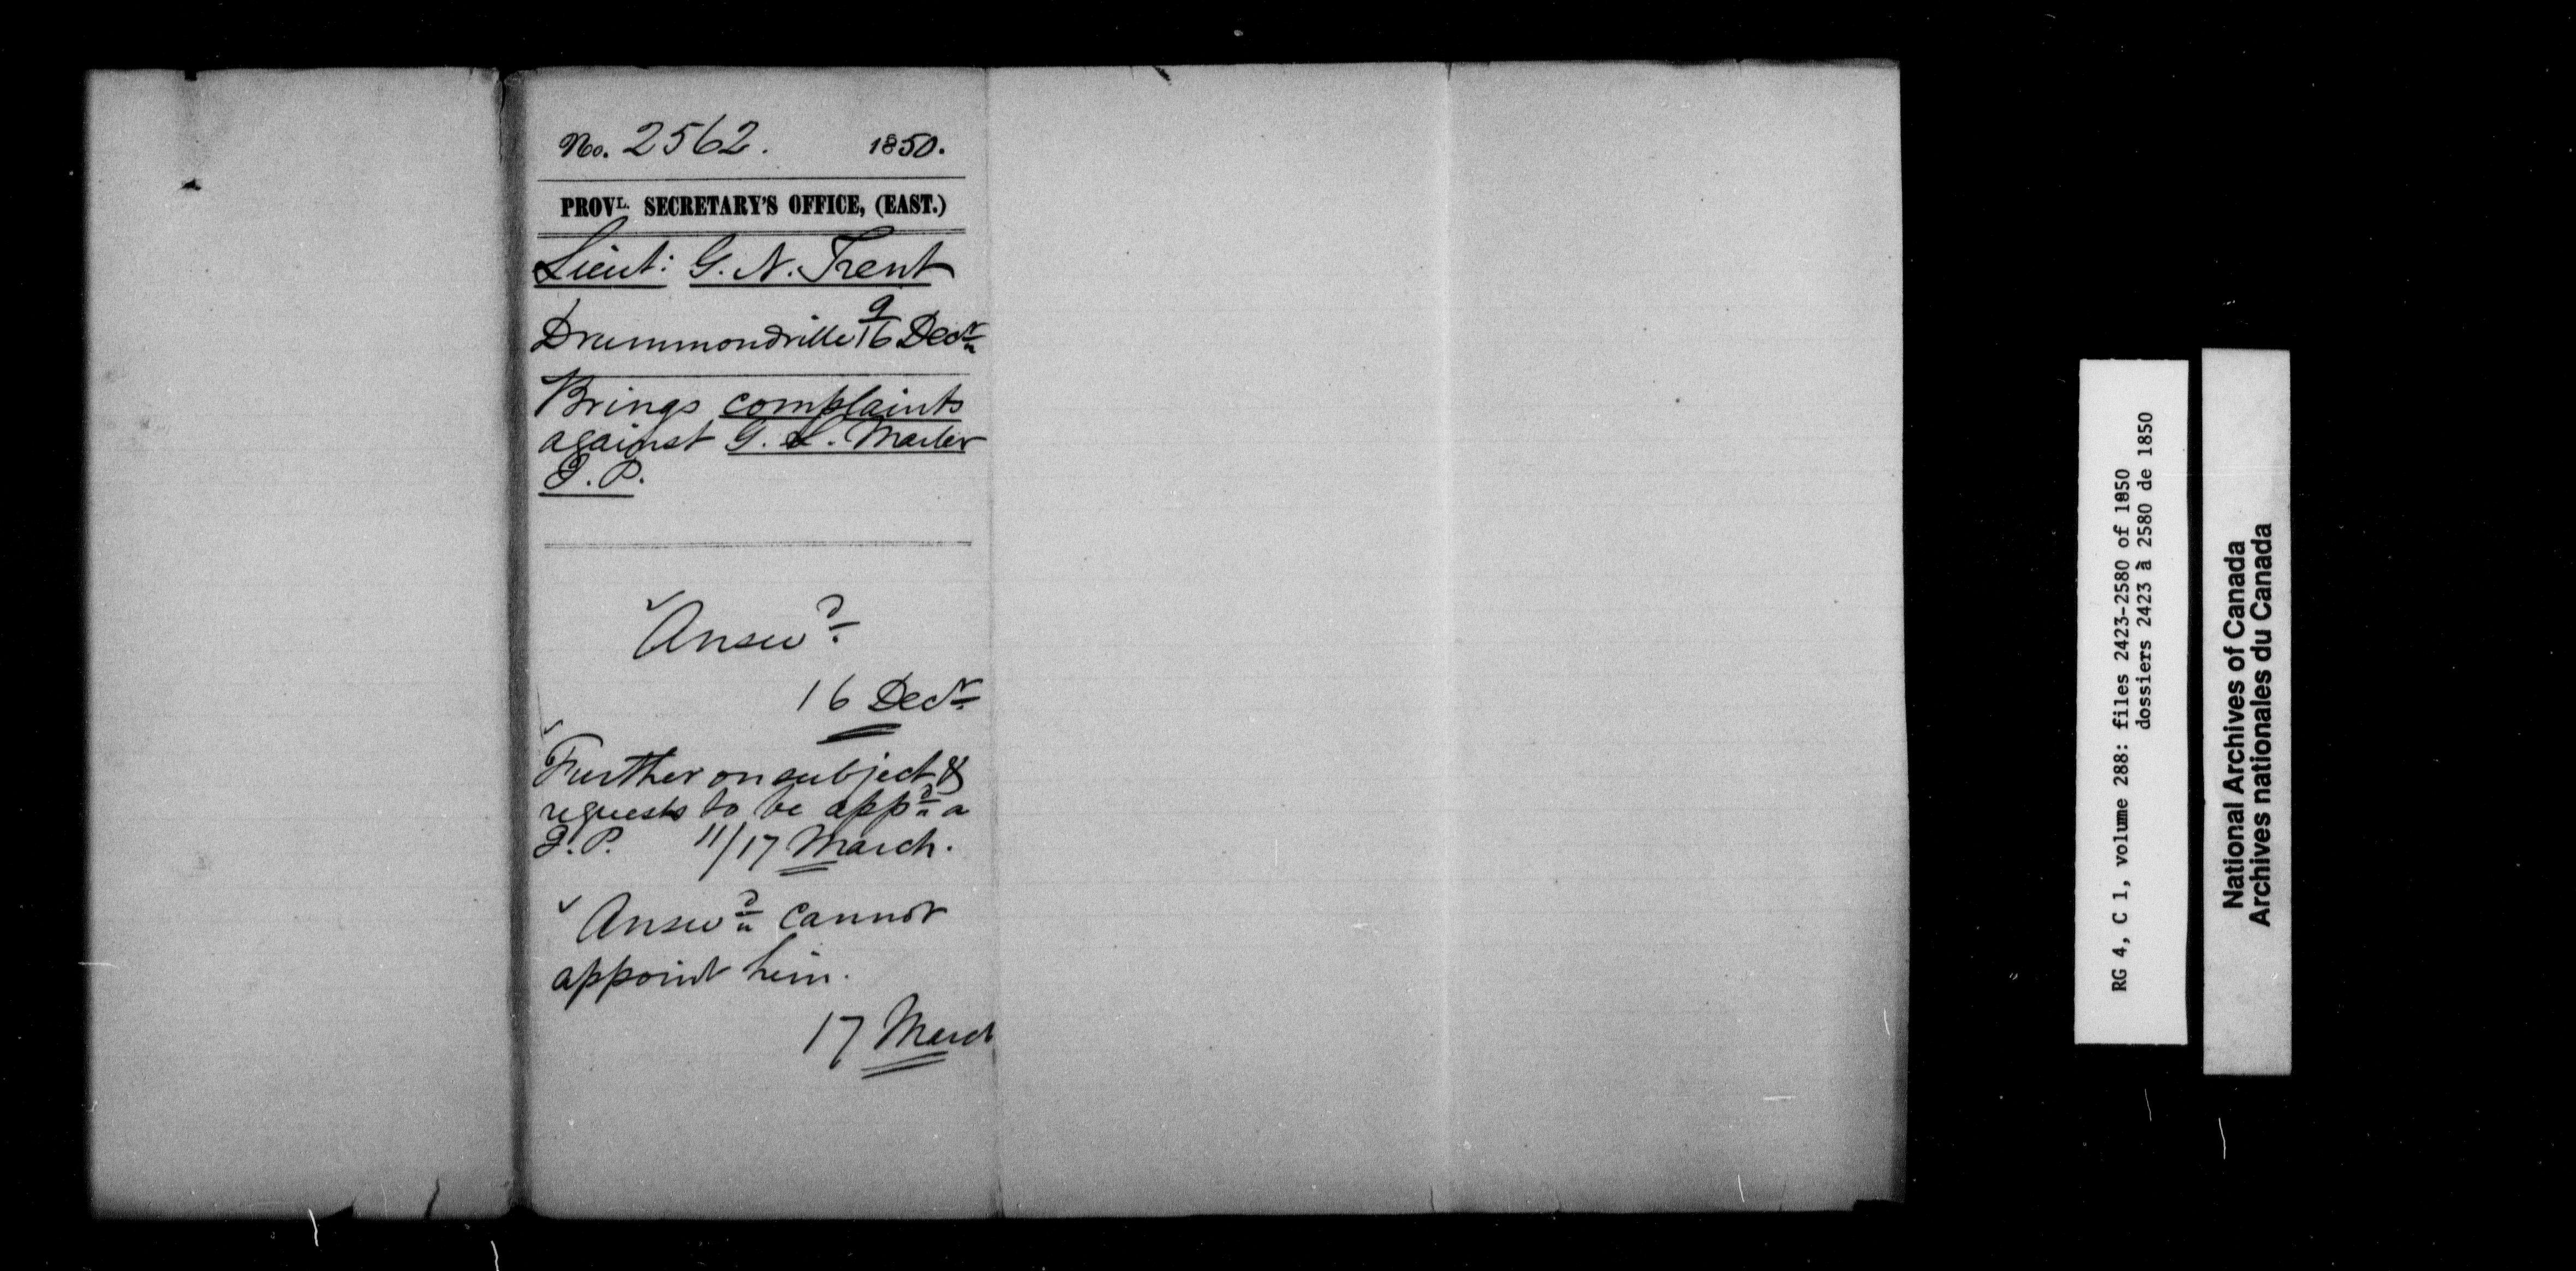 No. 2562. 1850.
PROVL. SECRETARY'S OFFICE, (EAST.)
Lieut: G. N. Trent
Drummondville 9/16 Decr
Brings complaints
against G. L. Marler
J. P.
Answd
16 Decr
Further on subject &
requests to be appd a
J. P. 11/17 March.
Answd cannot
appoint him.
17 March
RG 4, C 1, volume 288: files 2423-2580 of 1850
dossiers 2423 à 2580 de 1850
National Archives of Canada
Archives nationales du Canada